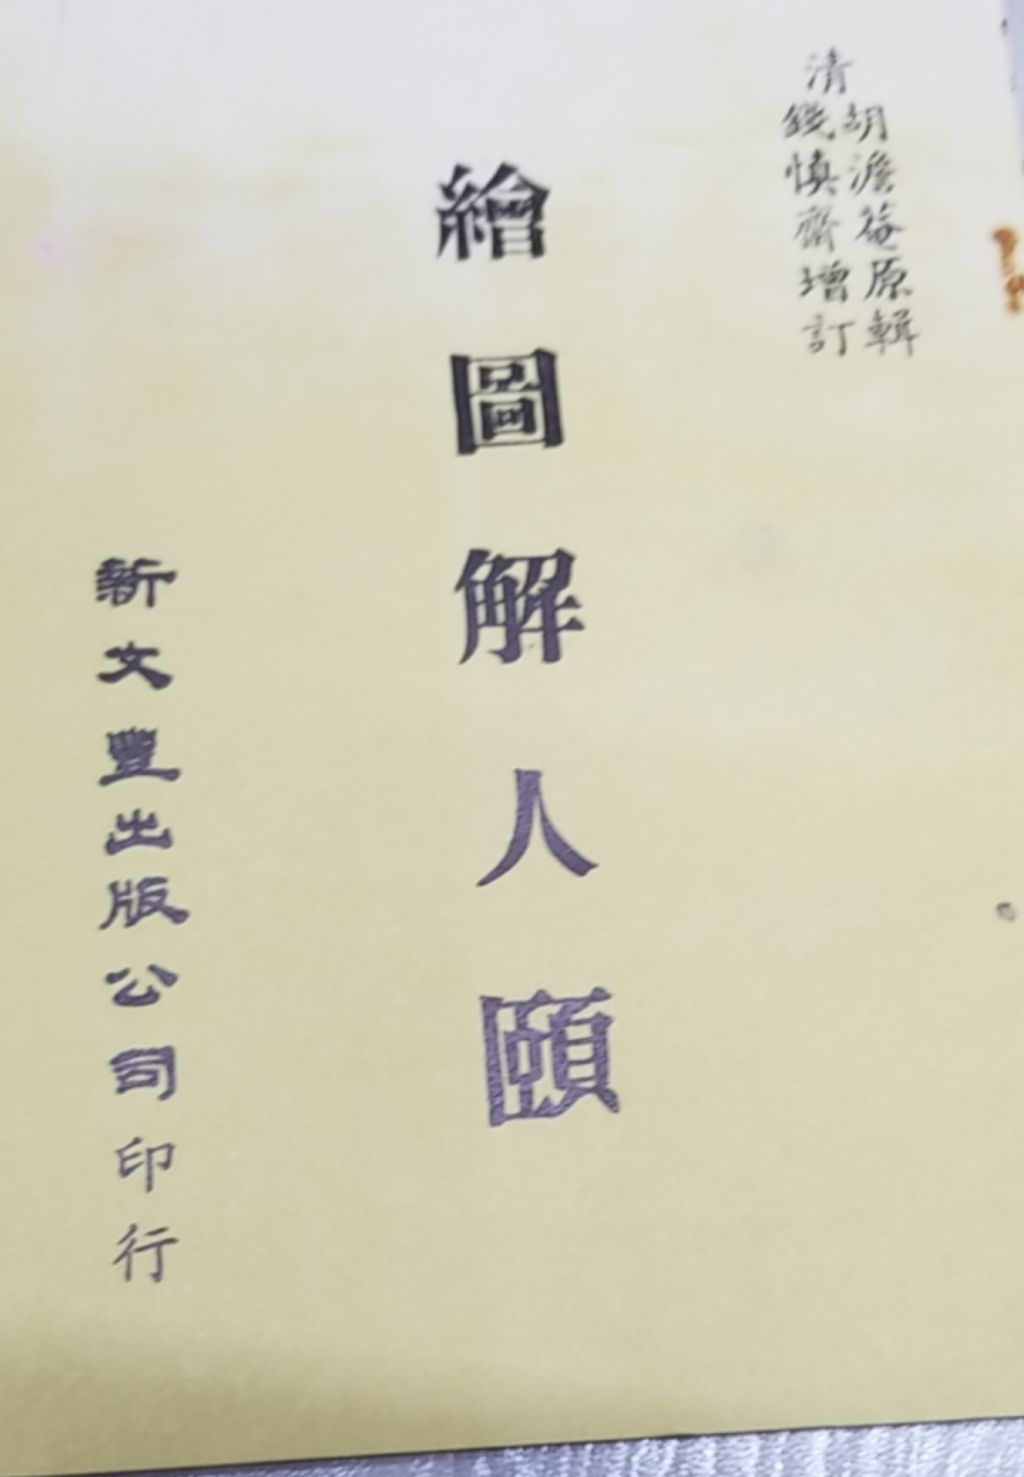 清
胡澹菴原輯
錢慎齋增訂
繪圖解人頤
新文豐出版公司印行